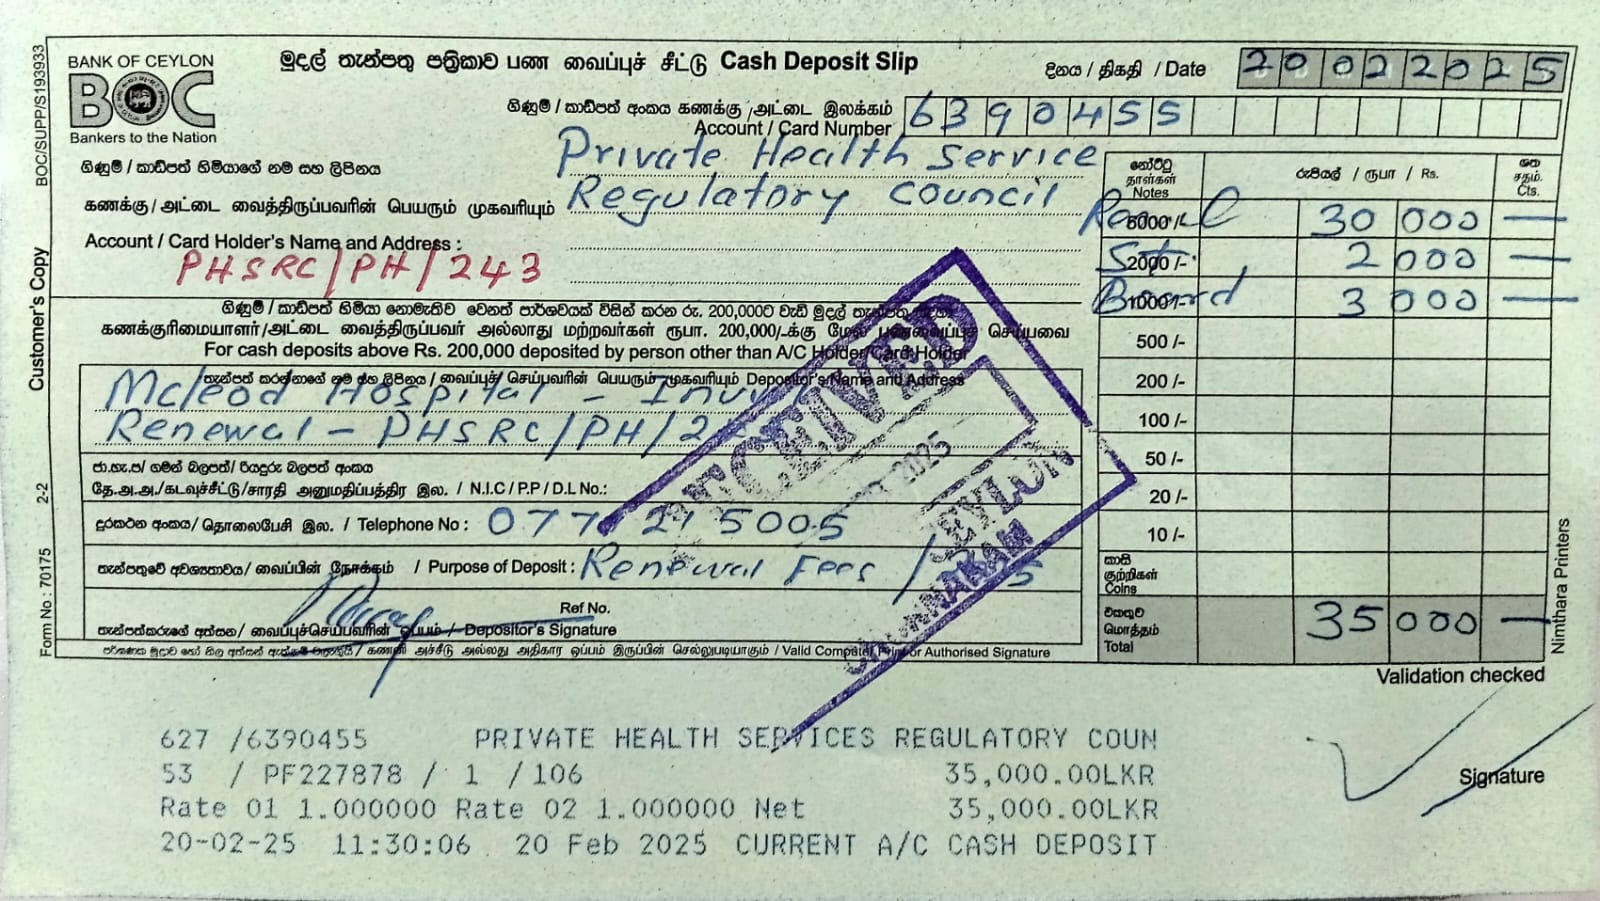 BOC/SUPP/S193933
Customer's Copy
2-2
Form No : 70175
BANK OF CEYLON
BOC
Bankers to the Nation
මුදල් තැන්පතු පත්‍රිකාව பண வைப்புச் சீட்டு Cash Deposit Slip
දිනය / திகதி / Date 20022025
ගිණුම් / කාඩ්පත් අංකය கணக்கு / அட்டை இலக்கம்
Account / Card Number 6390455
ගිණුම් / කාඩ්පත් හිමියාගේ නම සහ ලිපිනය
Private Health Service
கணக்கு / அட்டை வைத்திருப்பவரின் பெயரும் முகவரியும்
Regulatory Council
Account / Card Holder's Name and Address :
PHSRC/PH/243
ගිණුම් / කාඩ්පත් හිමියා නොමැතිව වෙනත් පාර්ශවයක් විසින් කරන රු. 200,000ට වැඩි මුදල්
கணக்குரிமையாளர்/அட்டை வைத்திருப்பவர் அல்லாது மற்றவர்கள் ரூபா. 200,000/-க்கு மேல் பணவைப்புச் செய்பவை
For cash deposits above Rs. 200,000 deposited by person other than A/C Holder/Card Holder
තැන්පත් කරන්නාගේ නම සහ ලිපිනය / வைப்புச் செய்பவரின் பெயரும் முகவரியும் Depositor's Name and Address
Mcleod Hospital -
Renewal - PHSRC/PH/
ජා.හැ.ප/ ගමන් බලපත්/ රියදුරු බලපත් අංකය
தே.அ.அ./கடவுச்சீட்டு/சாரதி அனுமதிப்பத்திர இல. / N.I.C / P.P / D.L No.:
දුරකථන අංකය / தொலைபேசி இல. / Telephone No :
තැන්පතුවේ අවශ්‍යතාවය / வைப்பின் நோக்கம் / Purpose of Deposit : Renewal Fees /
Ref No.
තැන්පත්කරුගේ අත්සන / வைப்புச்செய்பவரின் ஒப்பம் / Depositor's Signature
கணனி அச்சீடு அல்லது அதிகார ஒப்பம் இருப்பின் செல்லுபடியாகும் / Valid Computer Print or Authorised Signature
නෝට්ටු
தாள்கள்
Notes
රුපියල් / ரூபா / Rs.
ශත
சதம்.
Cts.
5000/- 30 000 —
2000 /- 2 000 —
Board 1000/- 3 000 —
500 /-
200 /-
100 /-
50 /-
20 /-
10 /-
කාසි
குற்றிகள்
Coins
එකතුව
மொத்தம்
Total
35 000 —
RECEIVED
2025
CEYLON
Nimthara Printers
Validation checked
Signature
627 /6390455 PRIVATE HEALTH SERVICES REGULATORY COUN
53 / PF227878 / 1 /106 35,000.00LKR
Rate 01 1.000000 Rate 02 1.000000 Net 35,000.00LKR
20-02-25 11:30:06 20 Feb 2025 CURRENT A/C CASH DEPOSIT